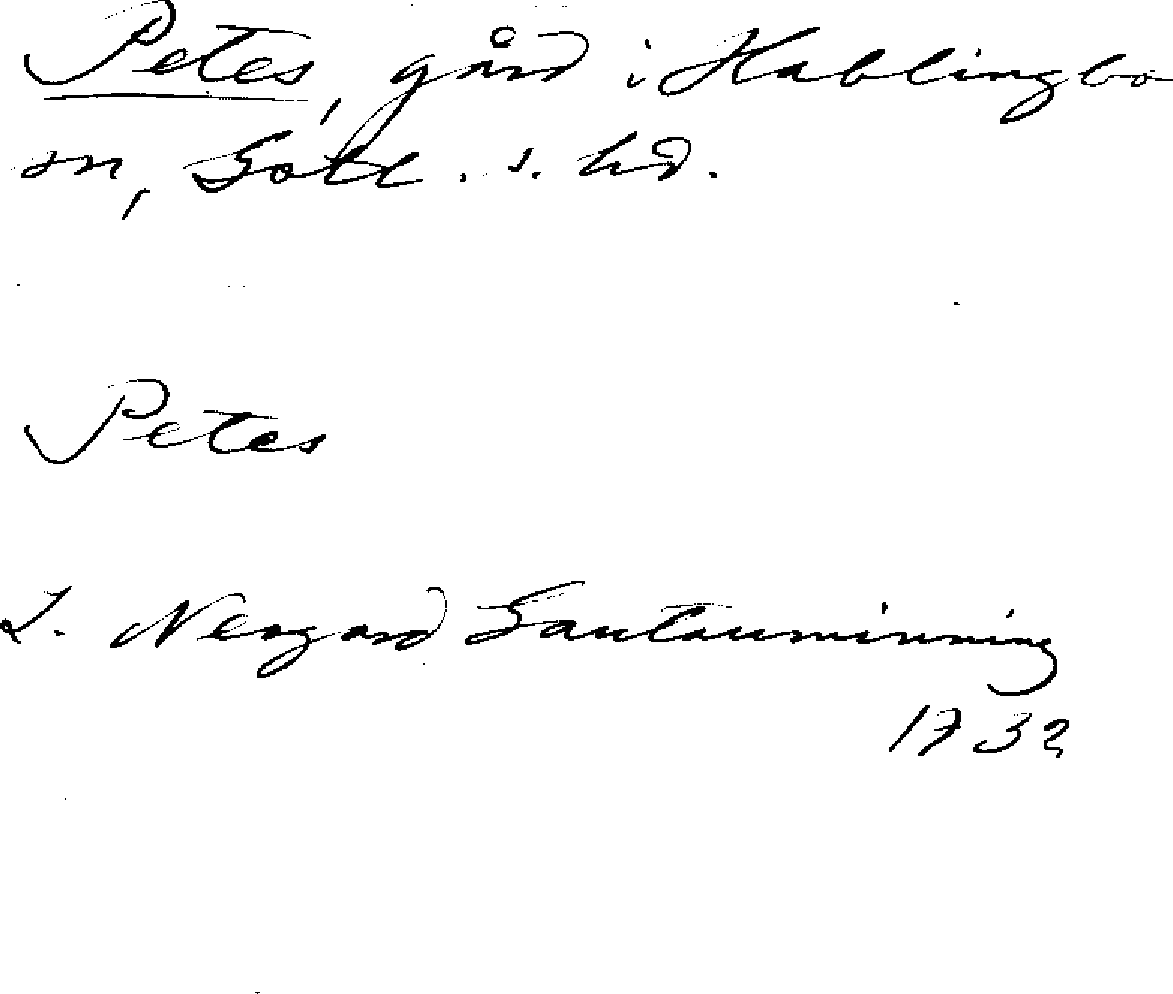 Petes, gård i Hablingbo
sn, Gotl. s. hd.
Petes
L. Neogard Gautauminning
1732